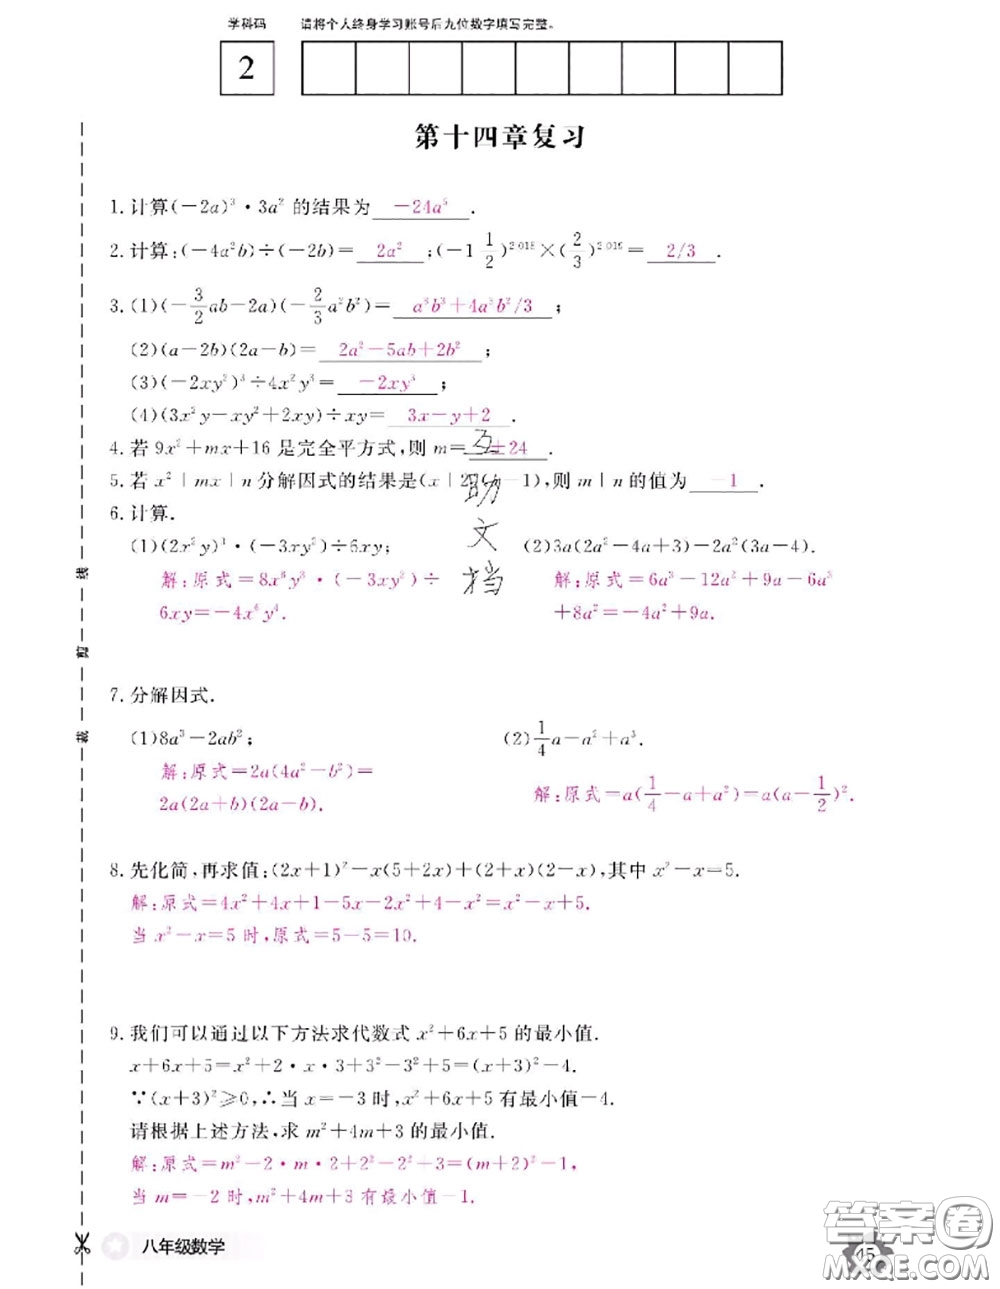 学科码 请将个人终身学习账号后九位数字填写完整。
2
第十四章复习
1.计算(-2a)³·3a²的结果为 -24a⁵ .
2.计算:(-4a²b)÷(-2b)= 2a² ;(-1 1/2)²⁰¹⁸×(2/3)²⁰¹⁹= 2/3 .
3.(1)(-3/2ab-2a)(-2/3a²b²)= a³b³+4a³b²/3 ;
(2)(a-2b)(2a-b)= 2a²-5ab+2b² ;
(3)(-2xy²)³÷4x²y³= -2xy³ ;
(4)(3x²y-xy²+2xy)÷xy= 3x-y+2 .
4.若9x²+mx+16是完全平方式,则m= ±24 .
5.若x²|mx|n分解因式的结果是(x|2)( -1),则m|n的值为 -1 .
6.计算.
(1)(2x²y)³·(-3xy²)÷6xy; (2)3a(2a²-4a+3)-2a²(3a-4).
解:原式=8x⁶y³·(-3xy²)÷ 解:原式=6a³-12a²+9a-6a³
6xy=-4x⁶y⁴. +8a²=-4a²+9a.
互助文档
7.分解因式.
(1)8a³-2ab²; (2)1/4a-a²+a³.
解:原式=2a(4a²-b²)= 解:原式=a(1/4-a+a²)=a(a-1/2)².
2a(2a+b)(2a-b).
8.先化简,再求值:(2x+1)²-x(5+2x)+(2+x)(2-x),其中x²-x=5.
解:原式=4x²+4x+1-5x-2x²+4-x²=x²-x+5.
当x²-x=5时,原式=5-5=10.
9.我们可以通过以下方法求代数式x²+6x+5的最小值.
x+6x+5=x²+2·x·3+3²-3²+5=(x+3)²-4.
∵(x+3)²≥0,∴当x=-3时,x²+6x+5有最小值-4.
请根据上述方法,求m²+4m+3的最小值.
解:原式=m²-2·m·2+2²-2²+3=(m+2)²-1,
当m=-2时,m²+4m+3有最小值-1.
线
剪
裁
八年级数学
45
答案圈